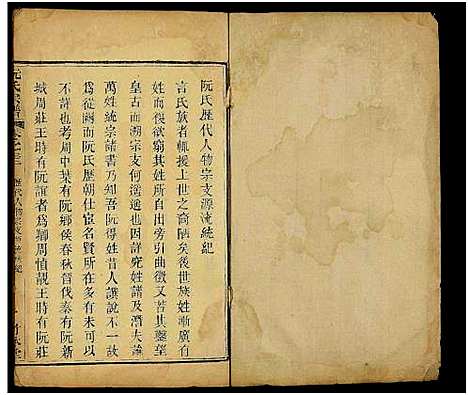 阮氏歷代人物宗支源流統紀
言氏族者輒援上世之裔陋矣後世族姓漸廣有
姓而後欲窮其姓所自出旁引曲徵又苦其鑿望
皇古而溯宗支何遙遙也因詳究姓譜及潛夫論
萬姓統宗諸書乃知吾阮得姓昔人譔說不一故
爲從爾而阮氏歷朝仕宦名賢所在多有未可以
不詳也考周中葉有阮鄉侯春秋晉伐秦有阮新
城周莊王時有阮誼者爲鄉周慎靚王時有阮莊
阮氏宗譜
卷之三
歷代人物宗支